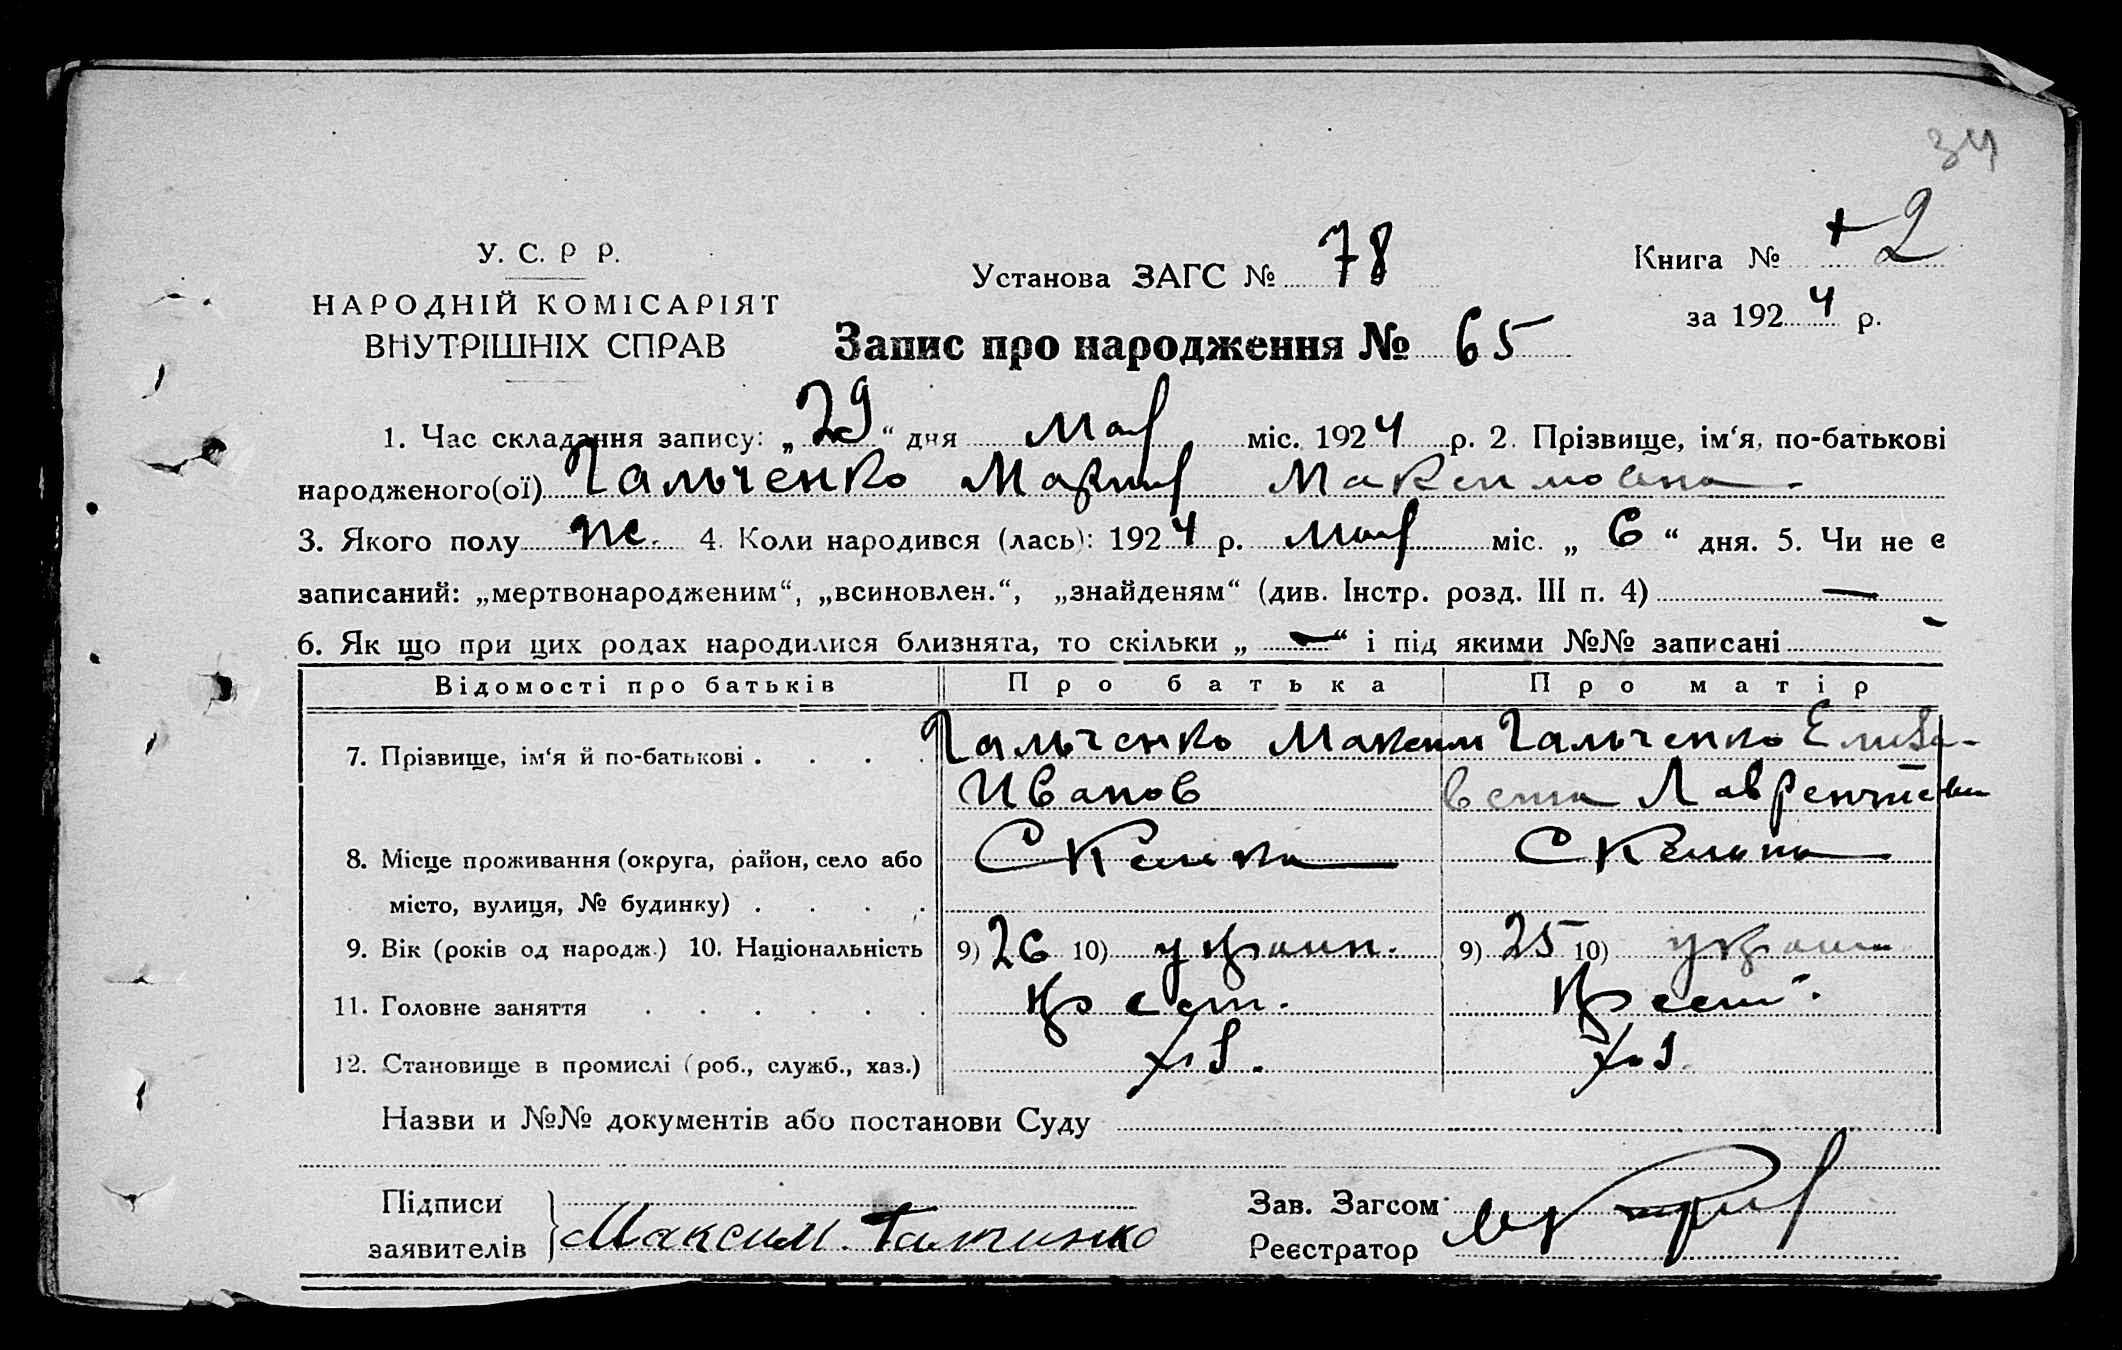 34
У. С. Р Р.
НАРОДНІЙ КОМІСАРІЯТ
ВНУТРІШНІХ СПРАВ
Установа ЗАГС № 78
Книга № 2
за 1924 р.
Запис про народження № 65
1. Час складання запису: „29“ дня мая міс. 1924 р. 2. Прізвище, ім‘я, по-батькові
народженого(ої) Гальченко Мария Максимовна
3. Якого полу ж. 4. Коли народився (лась): 1924 р. мая міс. „ 6 “ дня. 5. Чи не є
записаний: „мертвонародженим“, „всиновлен.“, „знайденям“ (див. Інстр. розд. III п. 4) —
6. Як що при цих родах народилися близнята, то скільки „ — “ і під якими №№ записані —
Відомості про батьків Про батька Про матір
7. Прізвище, ім‘я й по-батькові . . . . Гальченко Максим Гальченко Елиза-
Иванов вета Лаврентиевн
8. Місце проживання (округа, район, село або
місто, вулиця, № будинку) . . . .
9. Вік (років од народж.) 10. Національність 9) 26 10) украин. 9) 25 10) украин
11. Головне заняття . . . . . . крест. крест.
12. Становище в промислі (роб., служб., хаз.) хоз. хоз.
Назви и №№ документів або постанови Суду
Підписи
заявителів Максим Гальченко
Зав. Загсом
Реєстратор